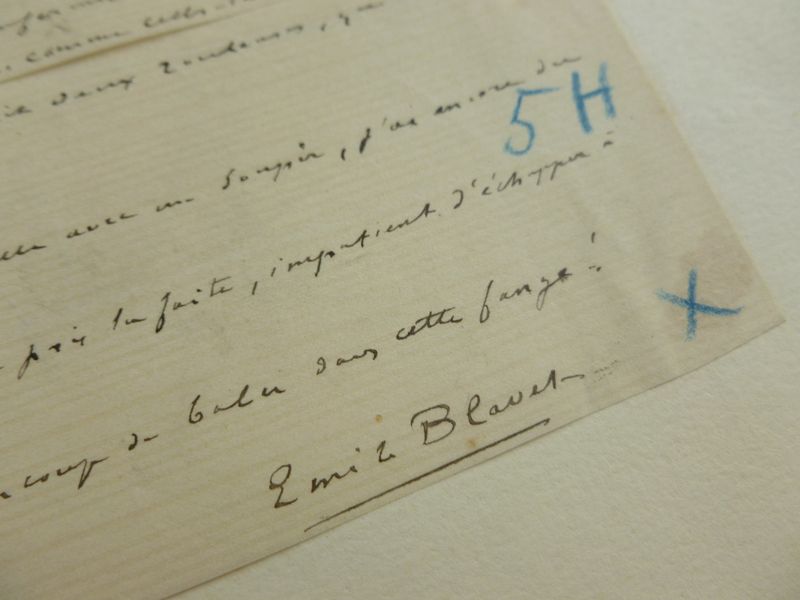 comme celle-
deux rouleaux, que
avec un soupir, j'ai encore du
5H
pris la fuite, impatient d'échapper à
coup de balai dans cette fange!
Emile Blavet
X